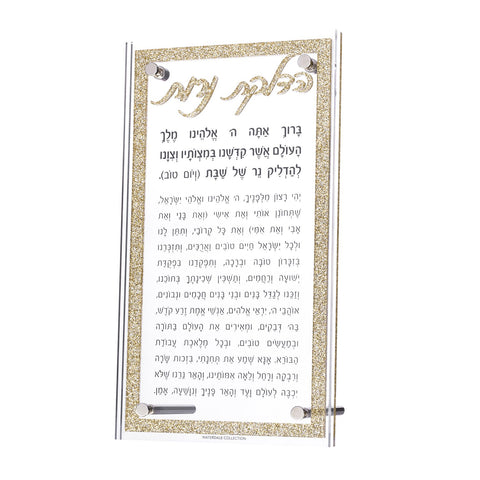 הדלקת נרות
בָּרוּךְ אַתָּה ה' אֱלֹהֵינוּ מֶלֶךְ
הָעוֹלָם אֲשֶׁר קִדְּשָׁנוּ בְּמִצְוֹתָיו וְצִוָּנוּ
לְהַדְלִיק נֵר שֶׁל שַׁבָּת (וְיוֹם טוֹב).
יְהִי רָצוֹן מִלְּפָנֶיךָ, ה' אֱלֹהֵינוּ וֵאלֹהֵי יִשְׂרָאֵל,
שֶׁתְּחוֹנֵן אוֹתִי וְאֶת אִישִׁי (וְאֶת בָּנַי וְאֶת
אָבִי וְאֶת אִמִּי) וְאֶת כָּל קְרוֹבַי, וְתִתֵּן לָנוּ
וּלְכָל יִשְׂרָאֵל חַיִּים טוֹבִים וַאֲרֻכִּים, וְתִזְכְּרֵנוּ
בְּזִכְרוֹן טוֹבָה וּבְרָכָה, וְתִפְקְדֵנוּ בִּפְקֻדַּת
יְשׁוּעָה וְרַחֲמִים, וְתַשְׁכֵּין שְׁכִינָתְךָ בְּתוֹכֵנוּ,
וְזַכֵּנוּ לְגַדֵּל בָּנִים וּבְנֵי בָנִים חֲכָמִים וּנְבוֹנִים,
אוֹהֲבֵי ה', יִרְאֵי אֱלֹהִים, אַנְשֵׁי אֱמֶת זֶרַע קֹדֶשׁ,
בַּה' דְּבֵקִים, וּמְאִירִים אֶת הָעוֹלָם בַּתּוֹרָה
וּבְמַעֲשִׂים טוֹבִים, וּבְכָל מְלֶאכֶת עֲבוֹדַת
הַבּוֹרֵא. אָנָּא שְׁמַע אֶת תְּחִנָּתִי, בִּזְכוּת שָׂרָה
וְרִבְקָה וְרָחֵל וְלֵאָה אִמּוֹתֵינוּ, וְהָאֵר נֵרֵנוּ שֶׁלֹּא
יִכְבֶּה לְעוֹלָם וָעֶד וְהָאֵר פָּנֶיךָ וְנִוָּשֵׁעָה, אָמֵן.
WATERDALE COLLECTION